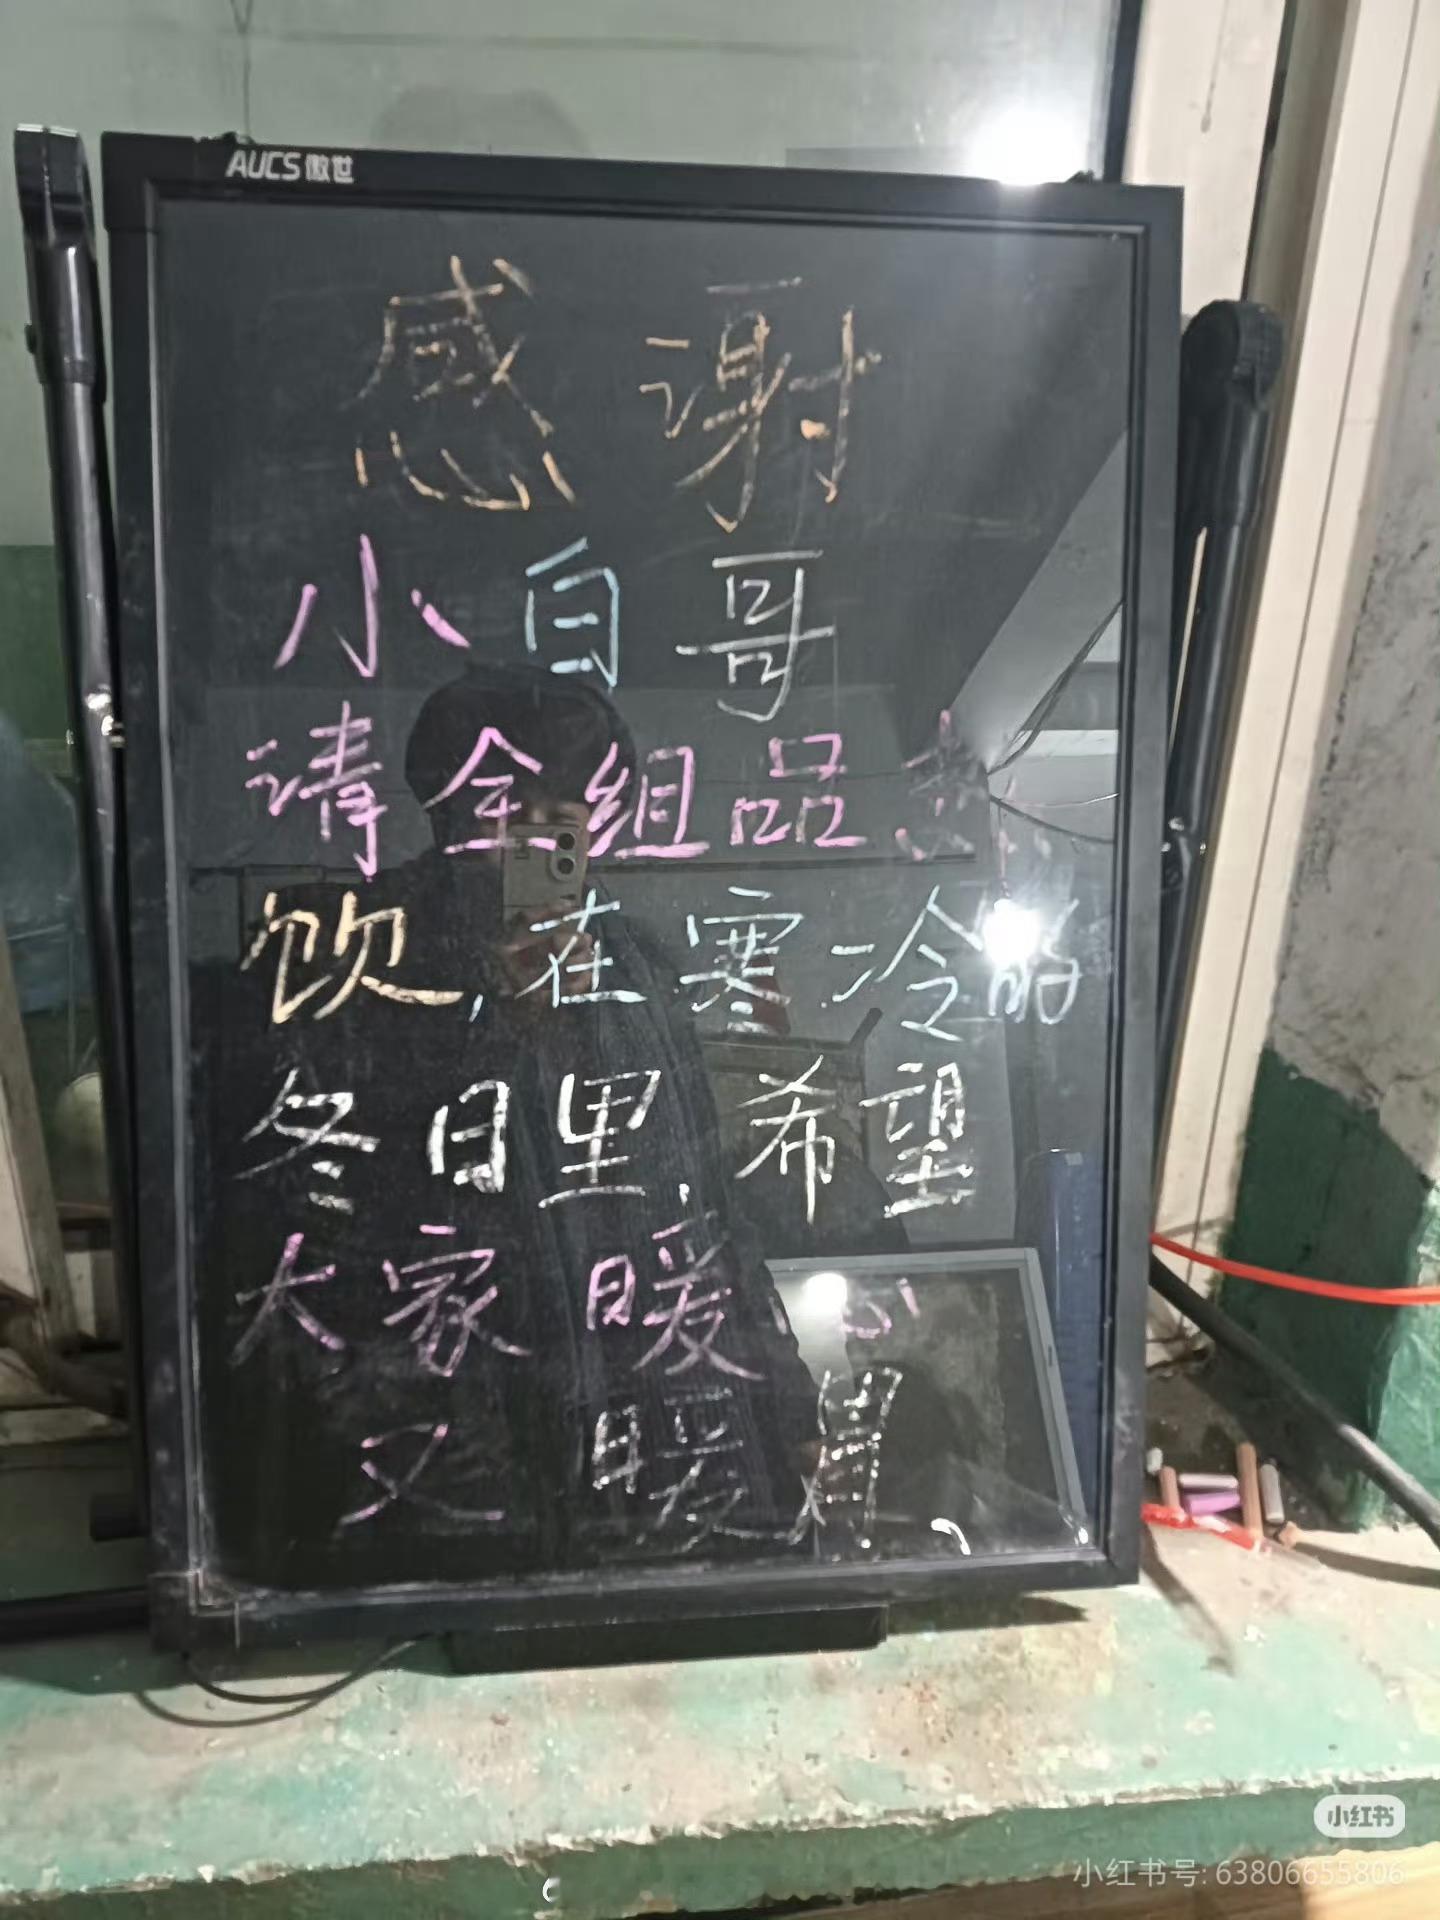 AUCS 傲世
感谢
小白哥
请全组品热
饮,在寒冷的
冬日里,希望
大家暖心
又暖胃、
小红书
小红书号: 63806655806